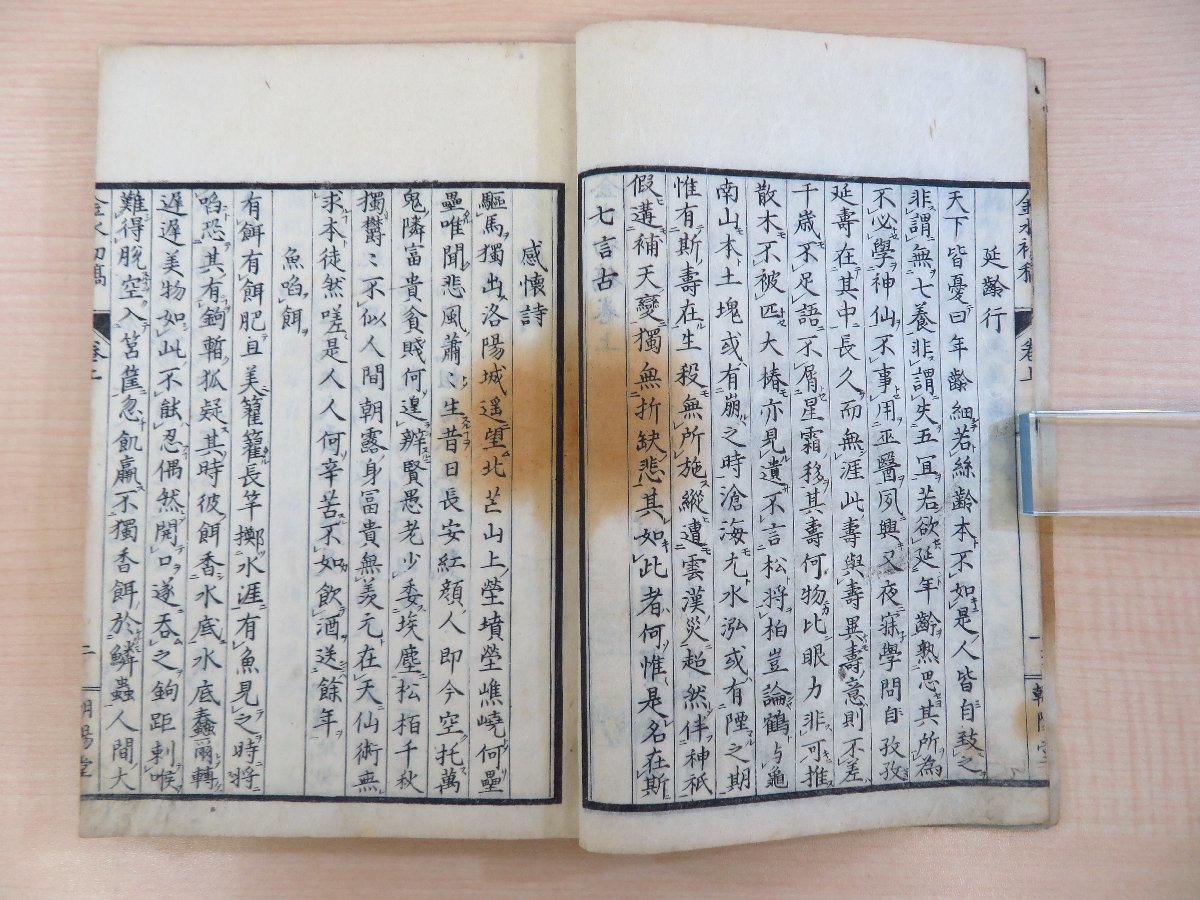 延齡行
天下皆憂曰年齡細若絲齡本不如是人皆自致之
非謂無七養非謂失五宜若欲延年齡熟思其所為
不必學神仙不事用巫醫夙興又夜寐學問自孜孜
延壽在其中長久而無涯此壽與壽異壽意則不差
千歲不足語不屑星霜移其壽何物比眼力非可推
散木不被匹大椿亦見遺不言松將柏豈論鶴与龜
南山本土塊或有崩之時滄海尤水泓或有陻之期
惟有斯壽在生殺無所施縱遭雲漢災超然伴神祇
假遘補天變獨無折缺悲其如此者何惟是名在斯
七言古
感懷詩
驅馬獨出洛陽城遥望北芒山上塋墳塋嶕嶢何壘
壘唯聞悲風蕭〻生昔日長安紅顔人即今空托萬
鬼隣富貴貧賤何遑辨賢愚老少委埃塵松栢千秋
獨欝〻不似人間朝露身冨貴無羨元在天仙術無
求本徒然嗟是人人何辛苦不如飲酒送餘年
魚啗餌
有餌有餌肥且美籊籊長竿擲水涯有魚見之時將
啗恐其有鉤暫狐疑其時彼餌香水底水底蠢爾轉
遲遲美物如此不飫忍偶然開口遂吞之鉤距刺喉
難得脫空入筥筐忽飢羸不獨香餌於鱗蟲人間大
卷上
朝陽堂